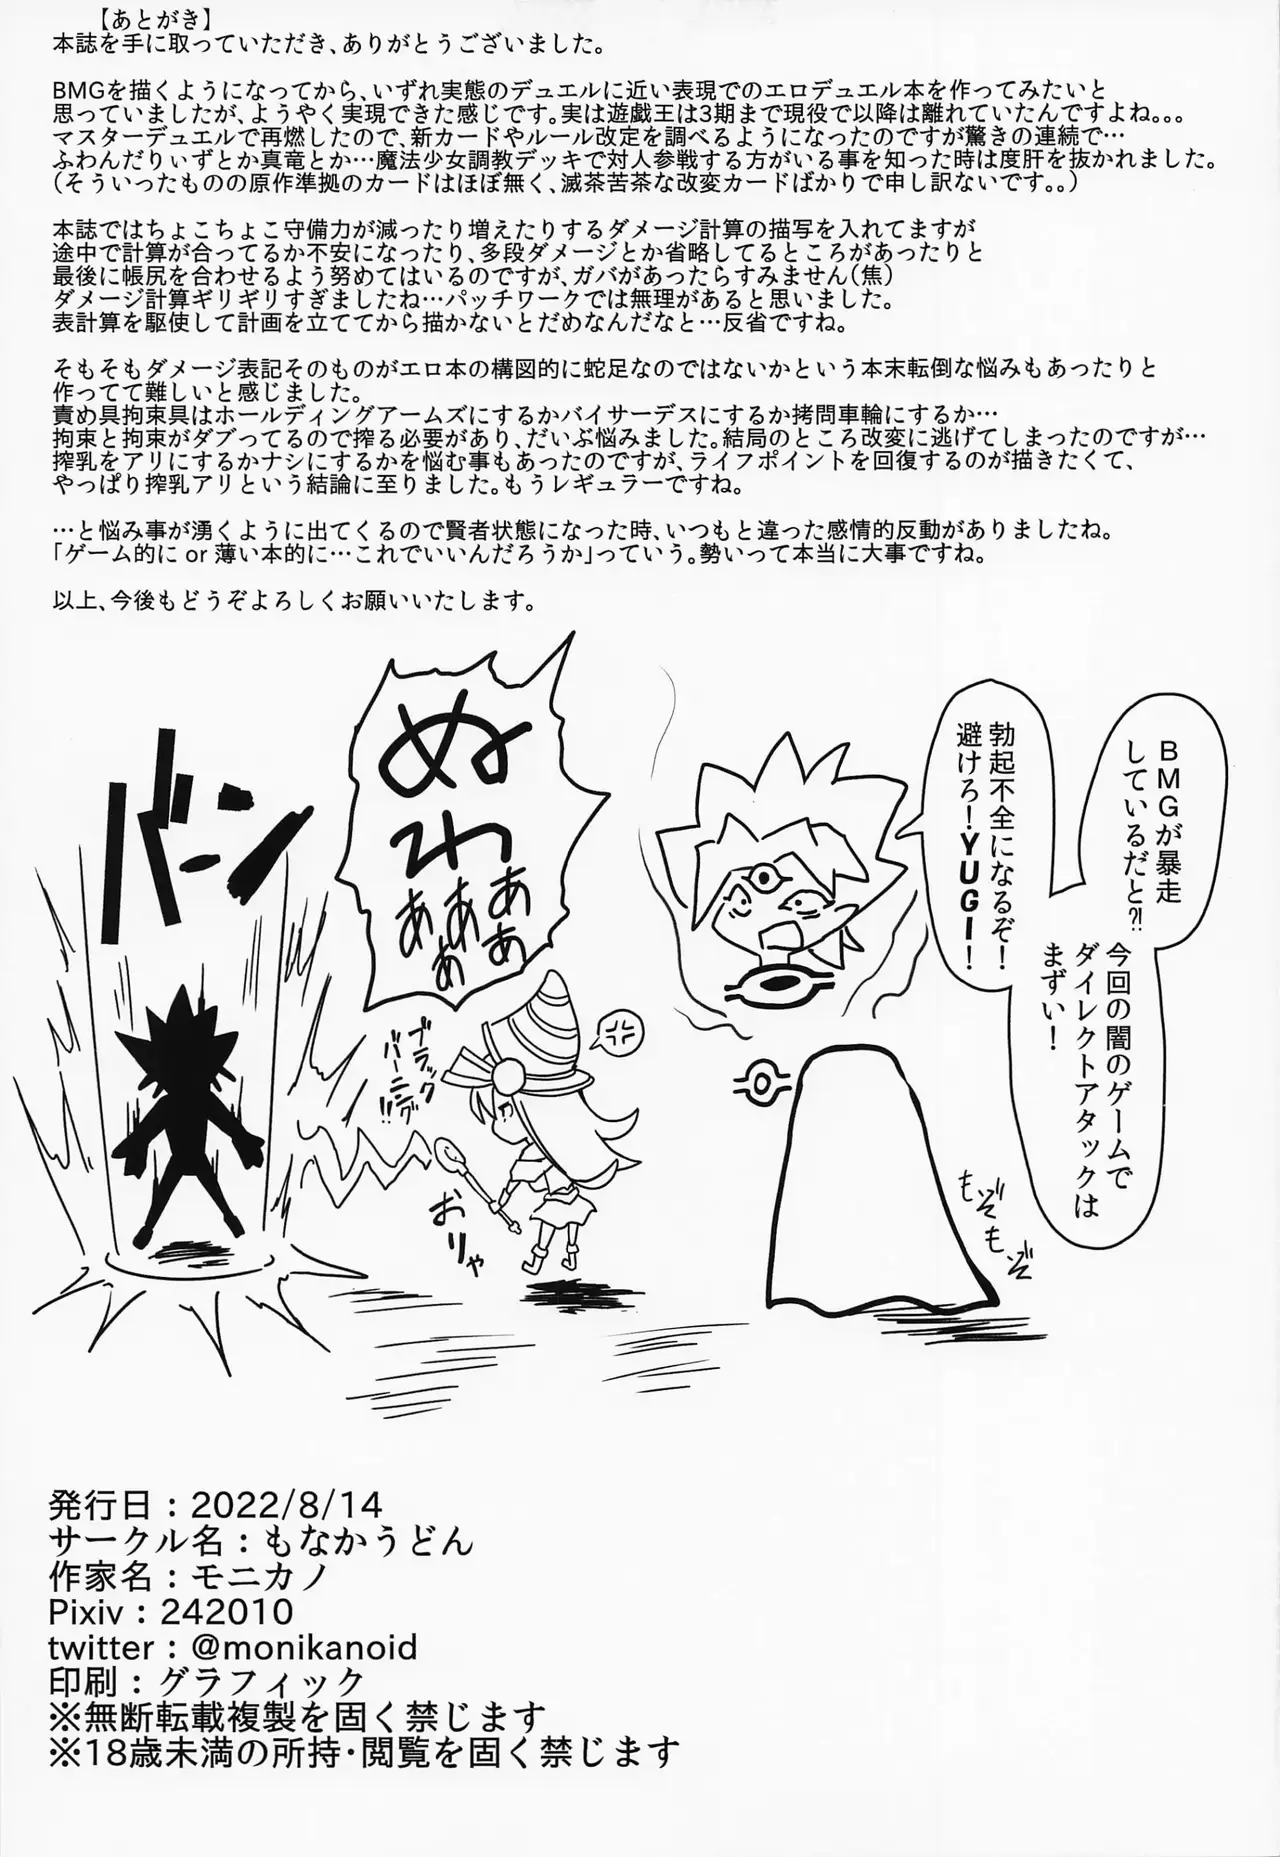 【あとがき】
本誌を手に取っていただき、ありがとうございました。
BMGを描くようになってから、いずれ実態のデュエルに近い表現でのエロデュエル本を作ってみたいと
思っていましたが、ようやく実現できた感じです。実は遊戯王は3期まで現役で以降は離れていたんですよね。。。
マスターデュエルで再燃したので、新カードやルール改定を調べるようになったのですが驚きの連続で…
ふわんだりぃずとか真竜とか…魔法少女調教デッキで対人参戦する方がいる事を知った時は度肝を抜かれました。
(そういったものの原作準拠のカードはほぼ無く、滅茶苦茶な改変カードばかりで申し訳ないです。。)
本誌ではちょこちょこ守備力が減ったり増えたりするダメージ計算の描写を入れてますが
途中で計算が合ってるか不安になったり、多段ダメージとか省略してるところがあったりと
最後に帳尻を合わせるよう努めてはいるのですが、ガバがあったらすみません(焦)
ダメージ計算ギリギリすぎましたね…パッチワークでは無理があると思いました。
表計算を駆使して計画を立ててから描かないとだめなんだなと…反省ですね。
そもそもダメージ表記そのものがエロ本の構図的に蛇足なのではないかという本末転倒な悩みもあったりと
作ってて難しいと感じました。
責め具拘束具はホールディングアームズにするかバイサーデスにするか拷問車輪にするか…
拘束と拘束がダブってるので搾る必要があり、だいぶ悩みました。結局のところ改変に逃げてしまったのですが…
搾乳をアリにするかナシにするかを悩む事もあったのですが、ライフポイントを回復するのが描きたくて、
やっぱり搾乳アリという結論に至りました。もうレギュラーですね。
…と悩み事が湧くように出てくるので賢者状態になった時、いつもと違った感情的反動がありましたね。
「ゲーム的に or 薄い本的に…これでいいんだろうか」っていう。勢いって本当に大事ですね。
以上、今後もどうぞよろしくお願いいたします。
BMGが暴走
しているだと⁈
今回の闇のゲームで
ダイレクトアタックは
まずい！
勃起不全になるぞ！
避けろ！YUGI！
ぬ
わ
ああ
ああ
ああ
バーン
ブラック
バーニング!!
おりゃ
もぞ
もぞ
発行日：2022/8/14
サークル名：もなかうどん
作家名：モニカノ
Pixiv：242010
twitter：@monikanoid
印刷：グラフィック
※無断転載複製を固く禁じます
※18歳未満の所持･閲覧を固く禁じます